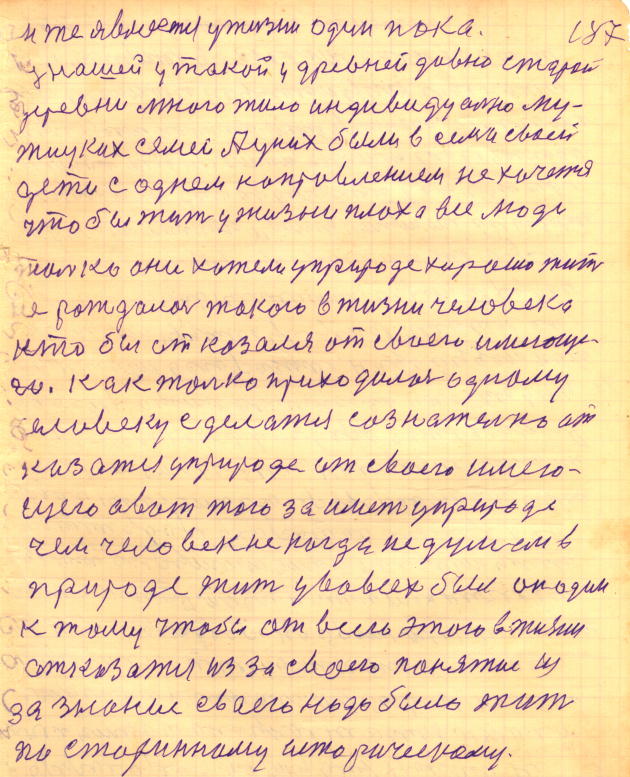 и те является у жизни один пока. 187
у нашей у такой у древней давно старой
деревни много жило индивидуално му-
жицких семей Ауних были в семи своей
дети с однем направлением не хочется
чтобы жит у жизни плоха все люди
толко они хотели у природе харашо жит
е рождалос такого в жизни человека
кто бы отказался от своего имеюще-
го. Как толко приходилос одному
еловеку сделатся сознателно от
казатся у природе от своего имею-
щего а вот того заимет у природе
чем человек не когда не думаем в
природе жит у вовсех был он один
к тому чтобы от всего этого в жизни
отказатся из за своего понятие и
за знание своего надо было жит
по старинному историческому.